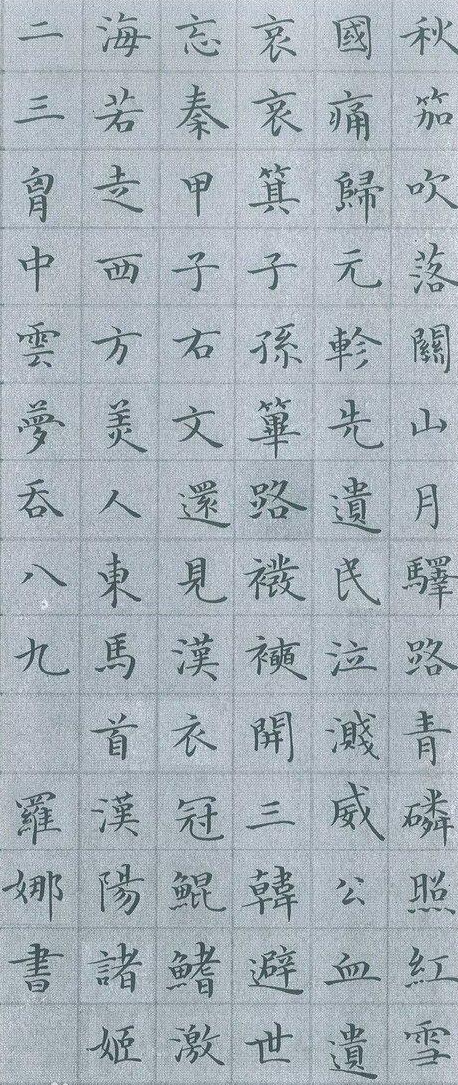 秋笳吹落關山月驛路青磷照紅雪
國痛歸元軫先遺民泣濺威公血遺
哀哀箕子孫篳路襏襫開三韓避世
忘秦甲子右文還見漢衣冠鯤鰭激
海若走西方美人東馬首漢陽諸姬
二三胷中雲夢吞八九 羅娜書